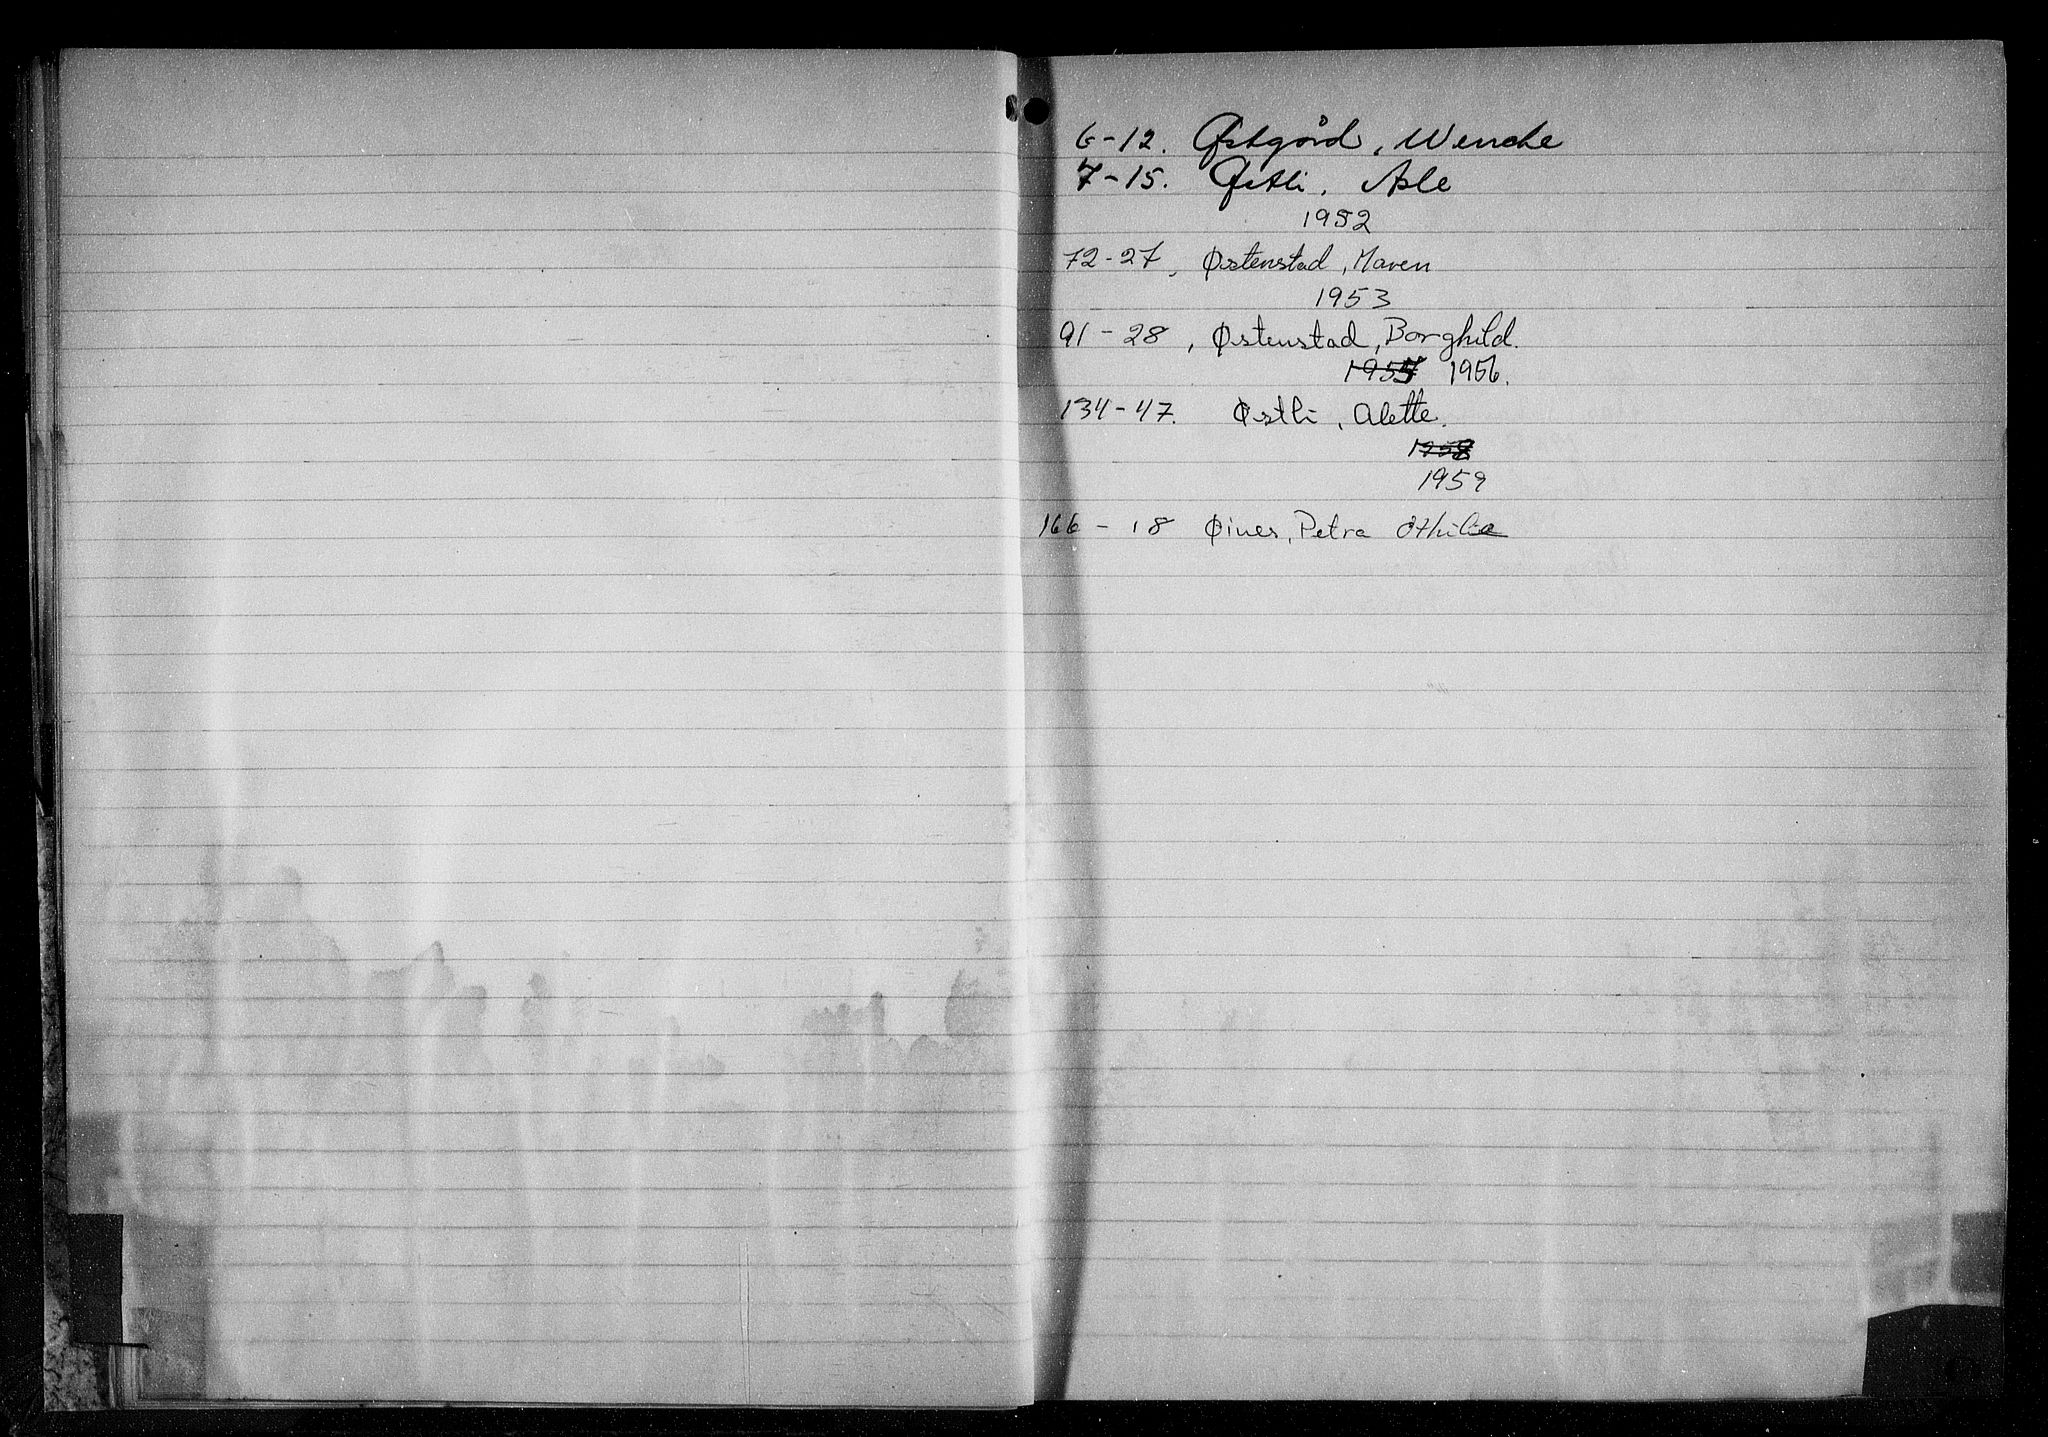 6-12. Østgård, Wenche
7-15. Østli, Asle
1952
72-27, Østenstad, Maren
1953
91-28, Østenstad, Borghild.
1955 1956.
134-47. Østli, Alette.
1958
1959
166-18 Øines, Petra Othilie